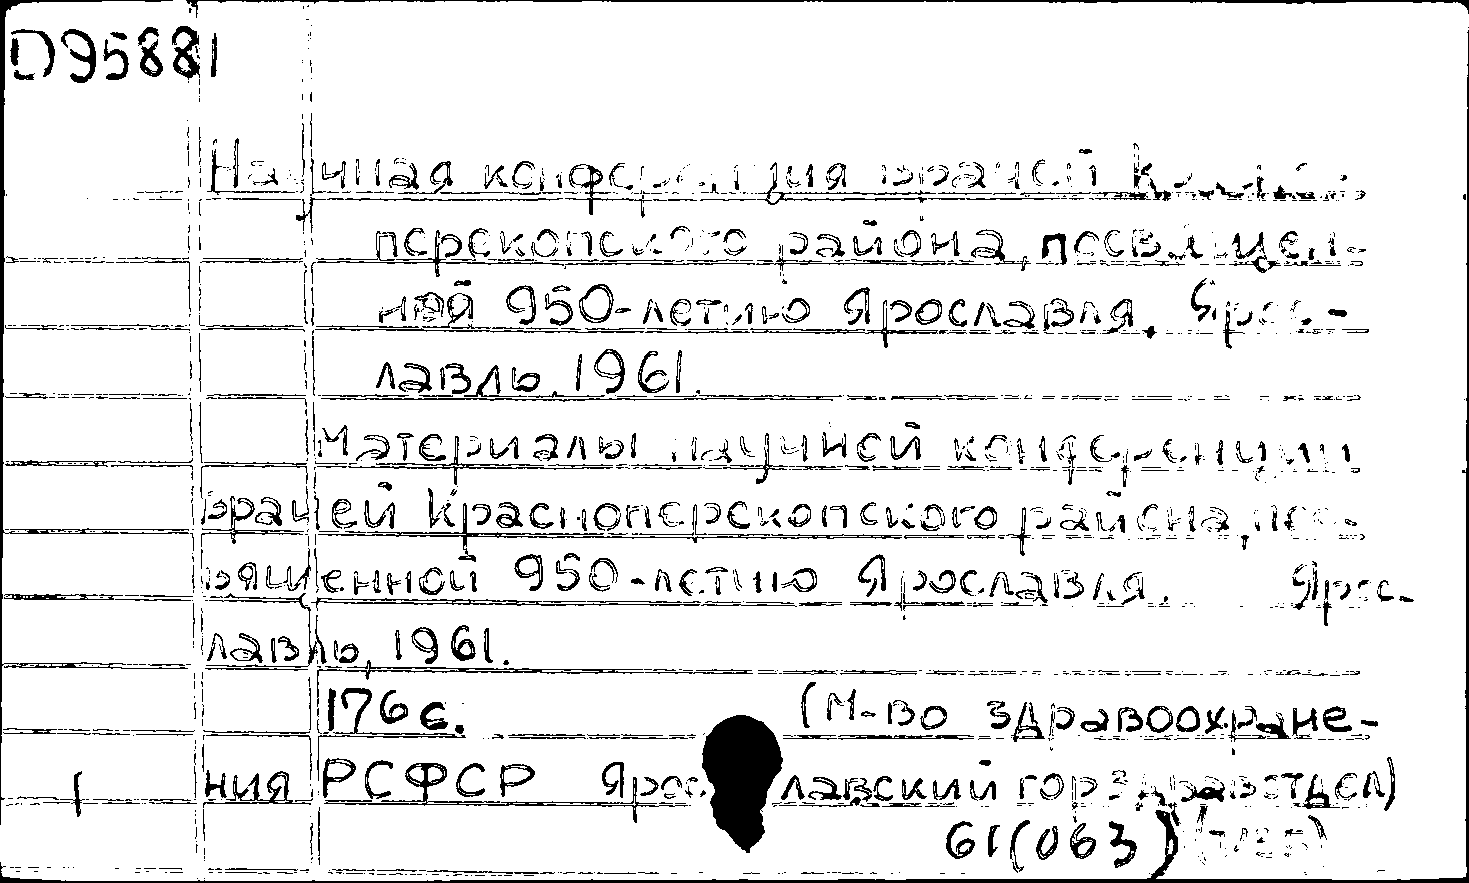 D95881
Научная конференция врачей
перекопского района, посвящен-
ной 950-летию Ярославля. Яро-
лавль, 1961.
Материалы научной конференции
врачей Красноперекопского района, пос-
вященной 950-летию Ярославля. Ярос-
лавль, 1961.
176 с. (М-во здравоохране-
1 ния РСФСР Ярославский горздравотдел)
61(063)